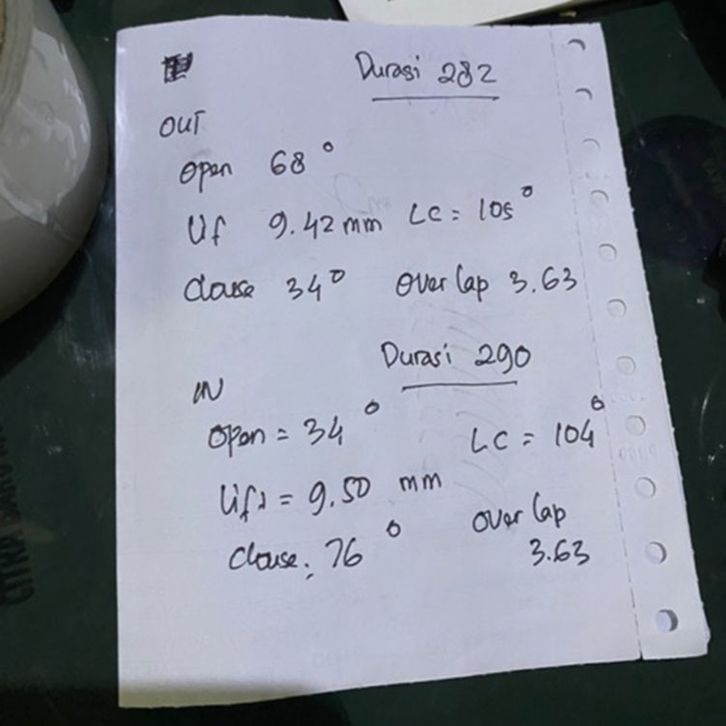 Durasi 282
OUT
open 68°
Lif 9.42 mm LC = 105°
Clouse 34° Over lap 3.63
Durasi 290
IN
open = 34° LC = 104°
Lift = 9.50 mm
Over lap
Clouse: 76° 3.63